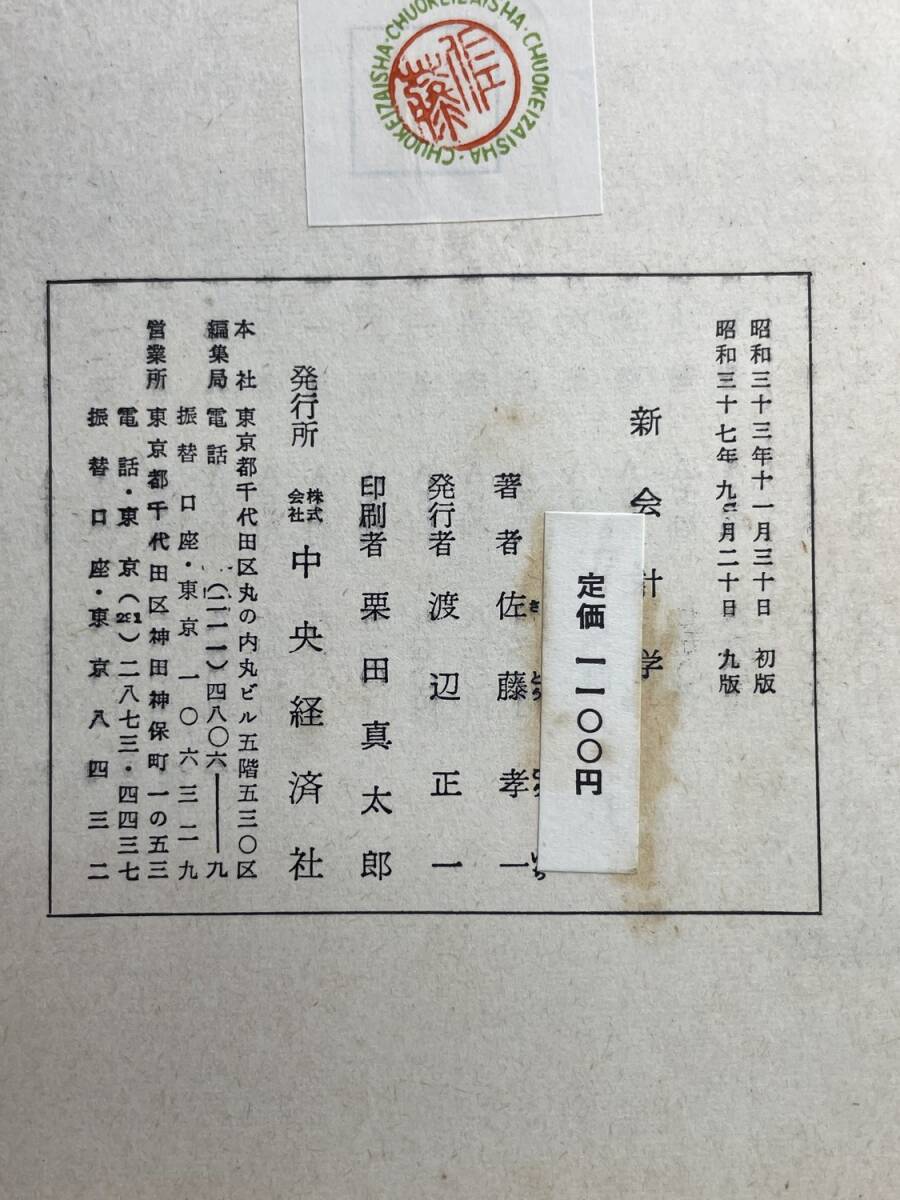 CHUOKEIZAISHA・CHUOKEIZAISHA・CHUOKEIZAISHA・
佐藤
昭和三十三年十一月三十日　初版
昭和三十七年九月二十日　九版
新会計学
定価 一一〇〇円
著者 佐藤孝一
さとう いち
発行者 渡辺正一
印刷者 栗田真太郎
発行所 株式会社 中央経済社
本社 東京都千代田区丸の内丸ビル五階五三〇区
編集局 電話（二一一）四八〇六――九
振替口座・東京一〇六三二九
営業所 東京都千代田区神田神保町一の五三
電話・東京（291）二八七三・四四三七
振替口座・東京八四三二